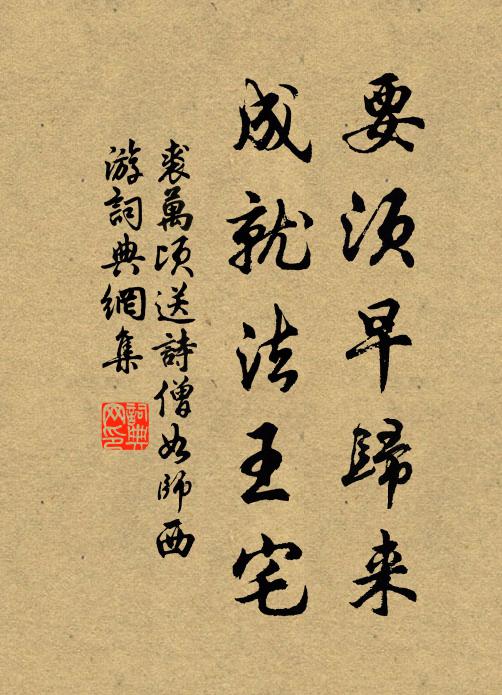 要须早歸来
成就法王宅
裘萬頃送詩僧如師西
游詞典網集
詞典
网印